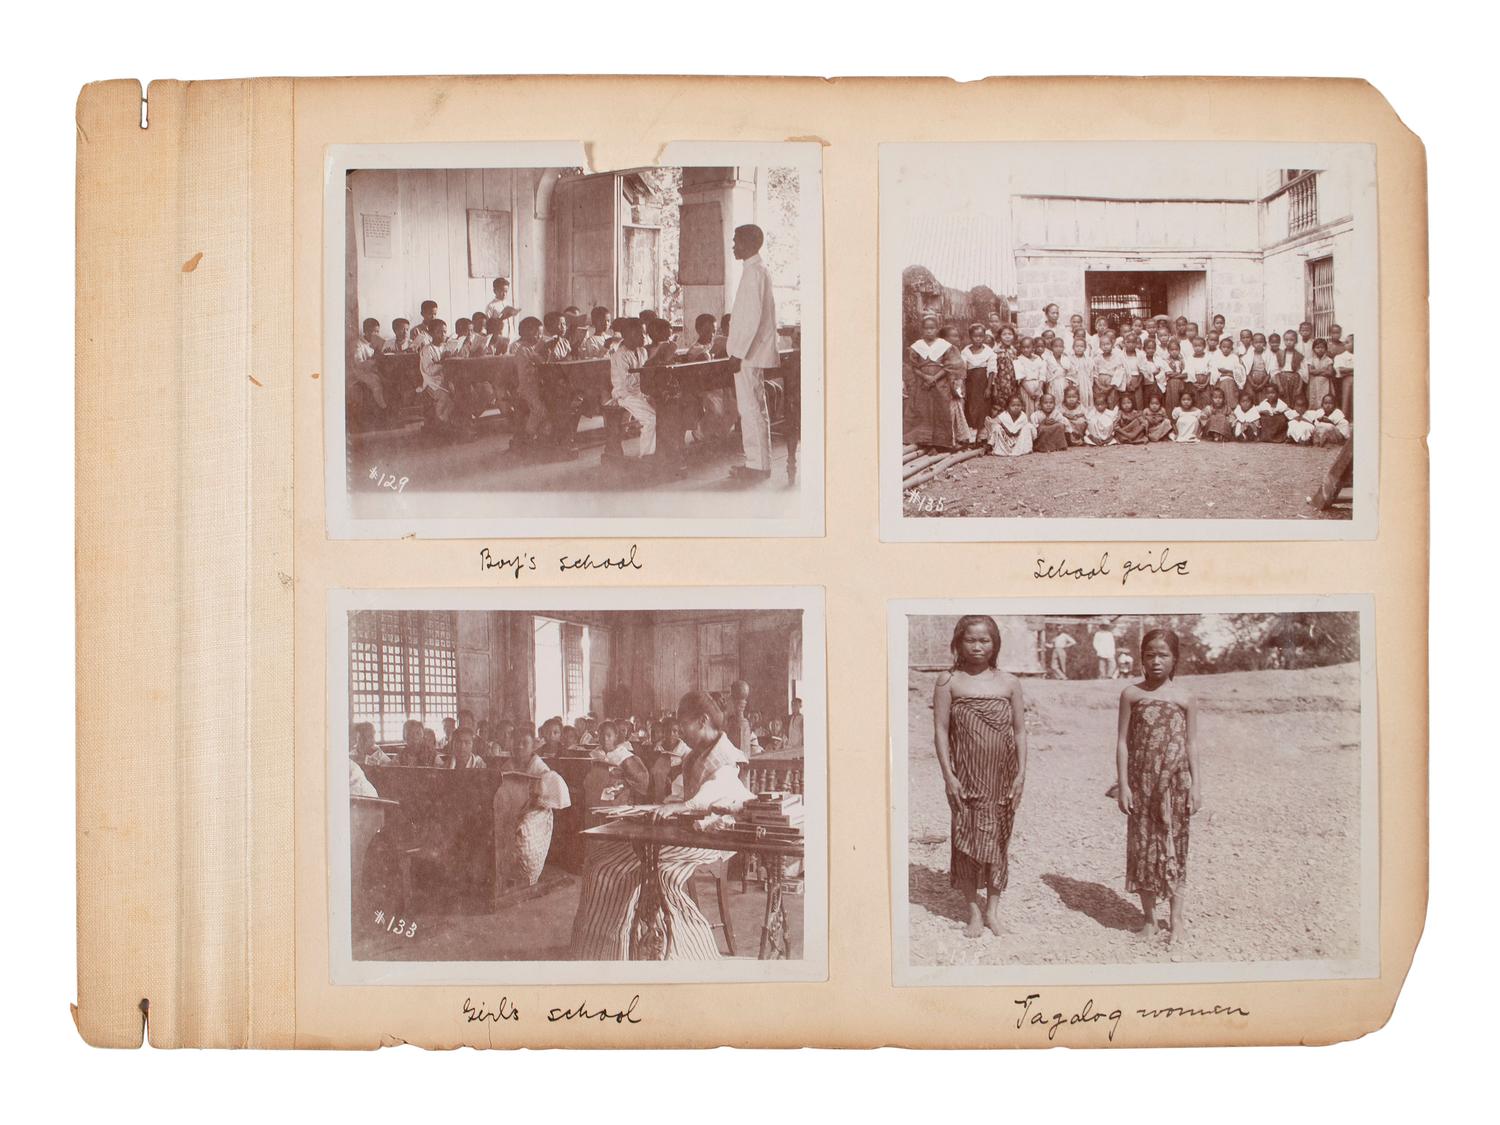 #129
Boy's school
#135
School girls
#133
Girl's school
Tagalog women